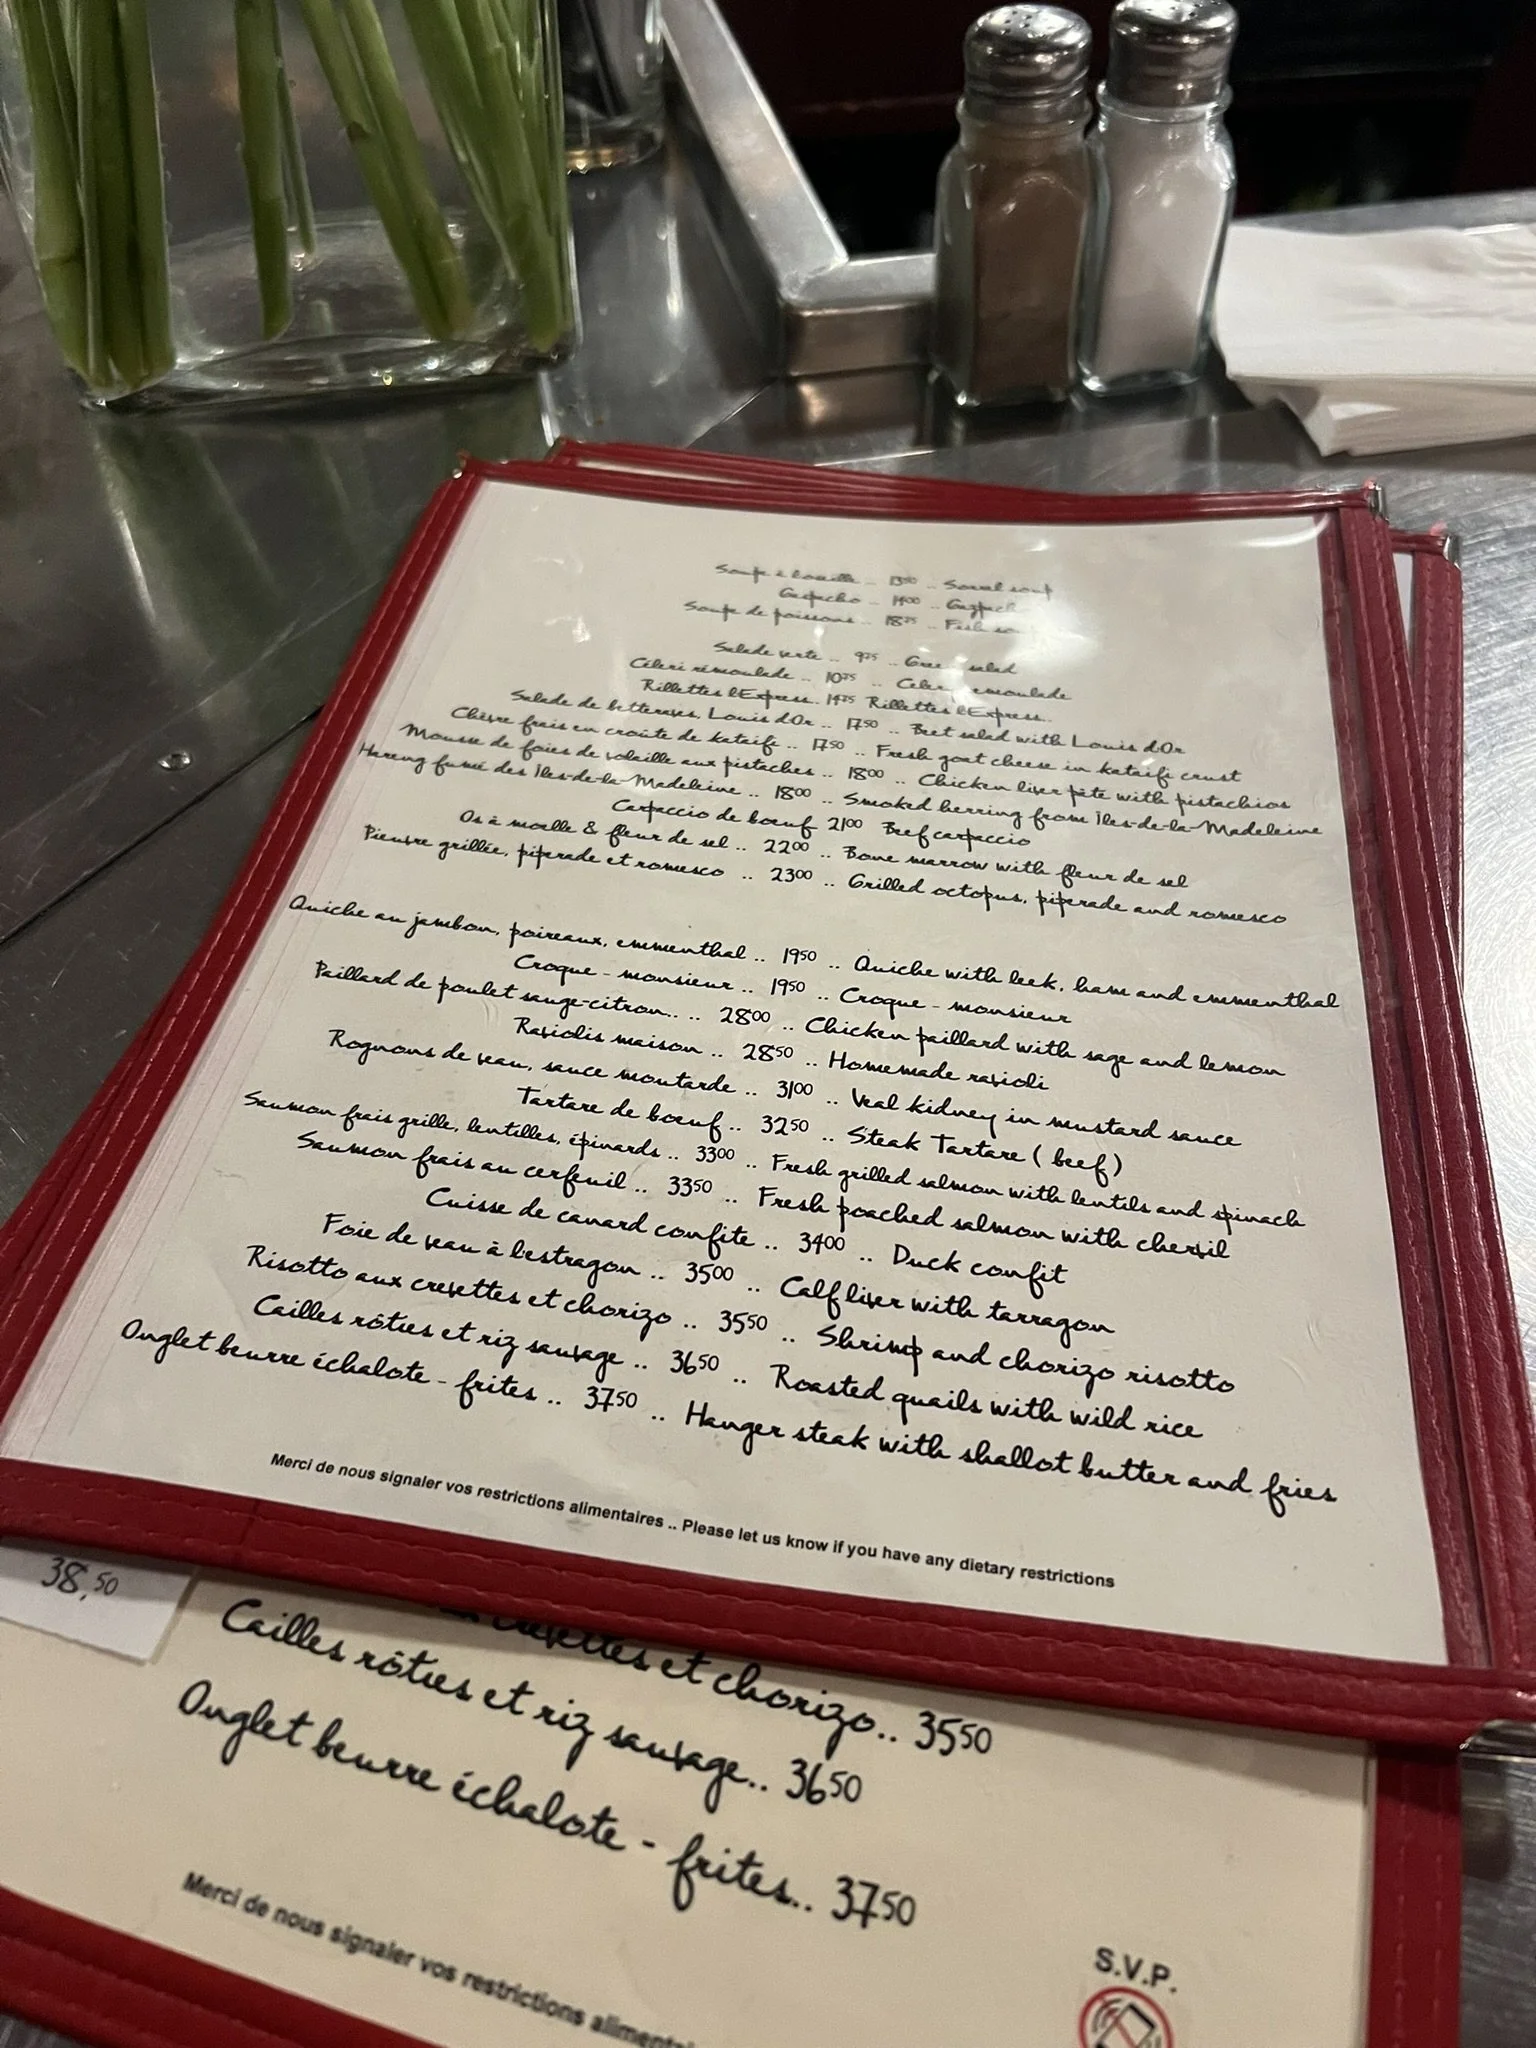 Soupe à l'oseille .. 13⁵⁰ .. Sorrel soup
Gazpacho .. 14⁰⁰ .. Gazpach
Soupe de poissons .. 18⁷⁵ .. Fish so
Salade verte .. 9⁷⁵ .. Gree salad
Céleri rémoulade .. 10⁷⁵ .. Celery remoulade
Rillettes l'Express.. 14⁷⁵ Rillettes l'Express..
Salade de betteraves, Louis d'Or .. 17⁵⁰ .. Beet salad with Louis d'Or
Chèvre frais en croûte de kataifi .. 17⁵⁰ .. Fresh goat cheese in kataifi crust
Mousse de foies de volaille aux pistaches .. 18⁰⁰ .. Chicken liver pâté with pistachios
Hareng fumé des Îles-de-la-Madeleine .. 18⁰⁰ .. Smoked herring from Îles-de-la-Madeleine
Carpaccio de boeuf 21⁰⁰ Beef carpaccio
Os à moelle & fleur de sel .. 22⁰⁰ .. Bone marrow with fleur de sel
Pieuvre grillée, piperade et romesco .. 23⁰⁰ .. Grilled octopus, piperade and romesco
Quiche au jambon, poireaux, emmenthal .. 19⁵⁰ .. Quiche with leek, ham and emmenthal
Croque - monsieur .. 19⁵⁰ .. Croque - monsieur
Paillard de poulet sauge-citron.. .. 28⁰⁰ .. Chicken paillard with sage and lemon
Raviolis maison .. 28⁵⁰ .. Homemade ravioli
Rognons de veau, sauce moutarde .. 31⁰⁰ .. Veal kidney in mustard sauce
Tartare de boeuf .. 32⁵⁰ .. Steak Tartare ( beef)
Saumon frais grille, lentilles, épinards .. 33⁰⁰ .. Fresh grilled salmon with lentils and spinach
Saumon frais au cerfeuil .. 33⁵⁰ .. Fresh poached salmon with chervil
Cuisse de canard confite .. 34⁰⁰ .. Duck confit
Foie de veau à l'estragon .. 35⁰⁰ .. Calf liver with tarragon
Risotto aux crevettes et chorizo .. 35⁵⁰ .. Shrimp and chorizo risotto
Cailles rôties et riz sauvage .. 36⁵⁰ .. Roasted quails with wild rice
Onglet beurre échalote - frites .. 37⁵⁰ .. Hanger steak with shallot butter and fries
Merci de nous signaler vos restrictions alimentaires .. Please let us know if you have any dietary restrictions
38,⁵⁰
crevettes et chorizo.. 35⁵⁰
Cailles rôties et riz sauvage.. 36⁵⁰
Onglet beurre échalote - frites.. 37⁵⁰
Merci de nous signaler vos restrictions alimentai
S.V.P.